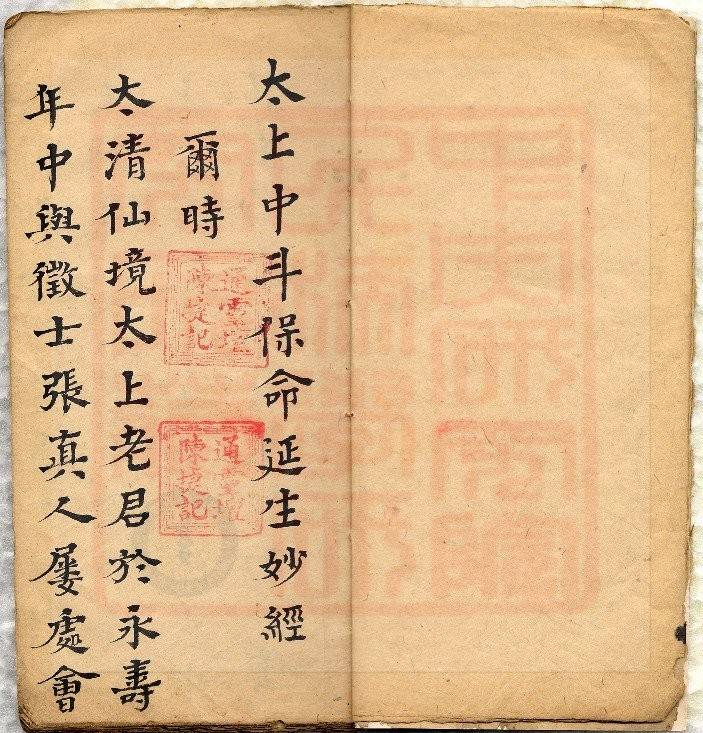 太上中斗保命延生妙經
爾時
太清仙境太上老君於永壽
年中與徵士張真人屡處會
通壇
陳記
通壇
陳記